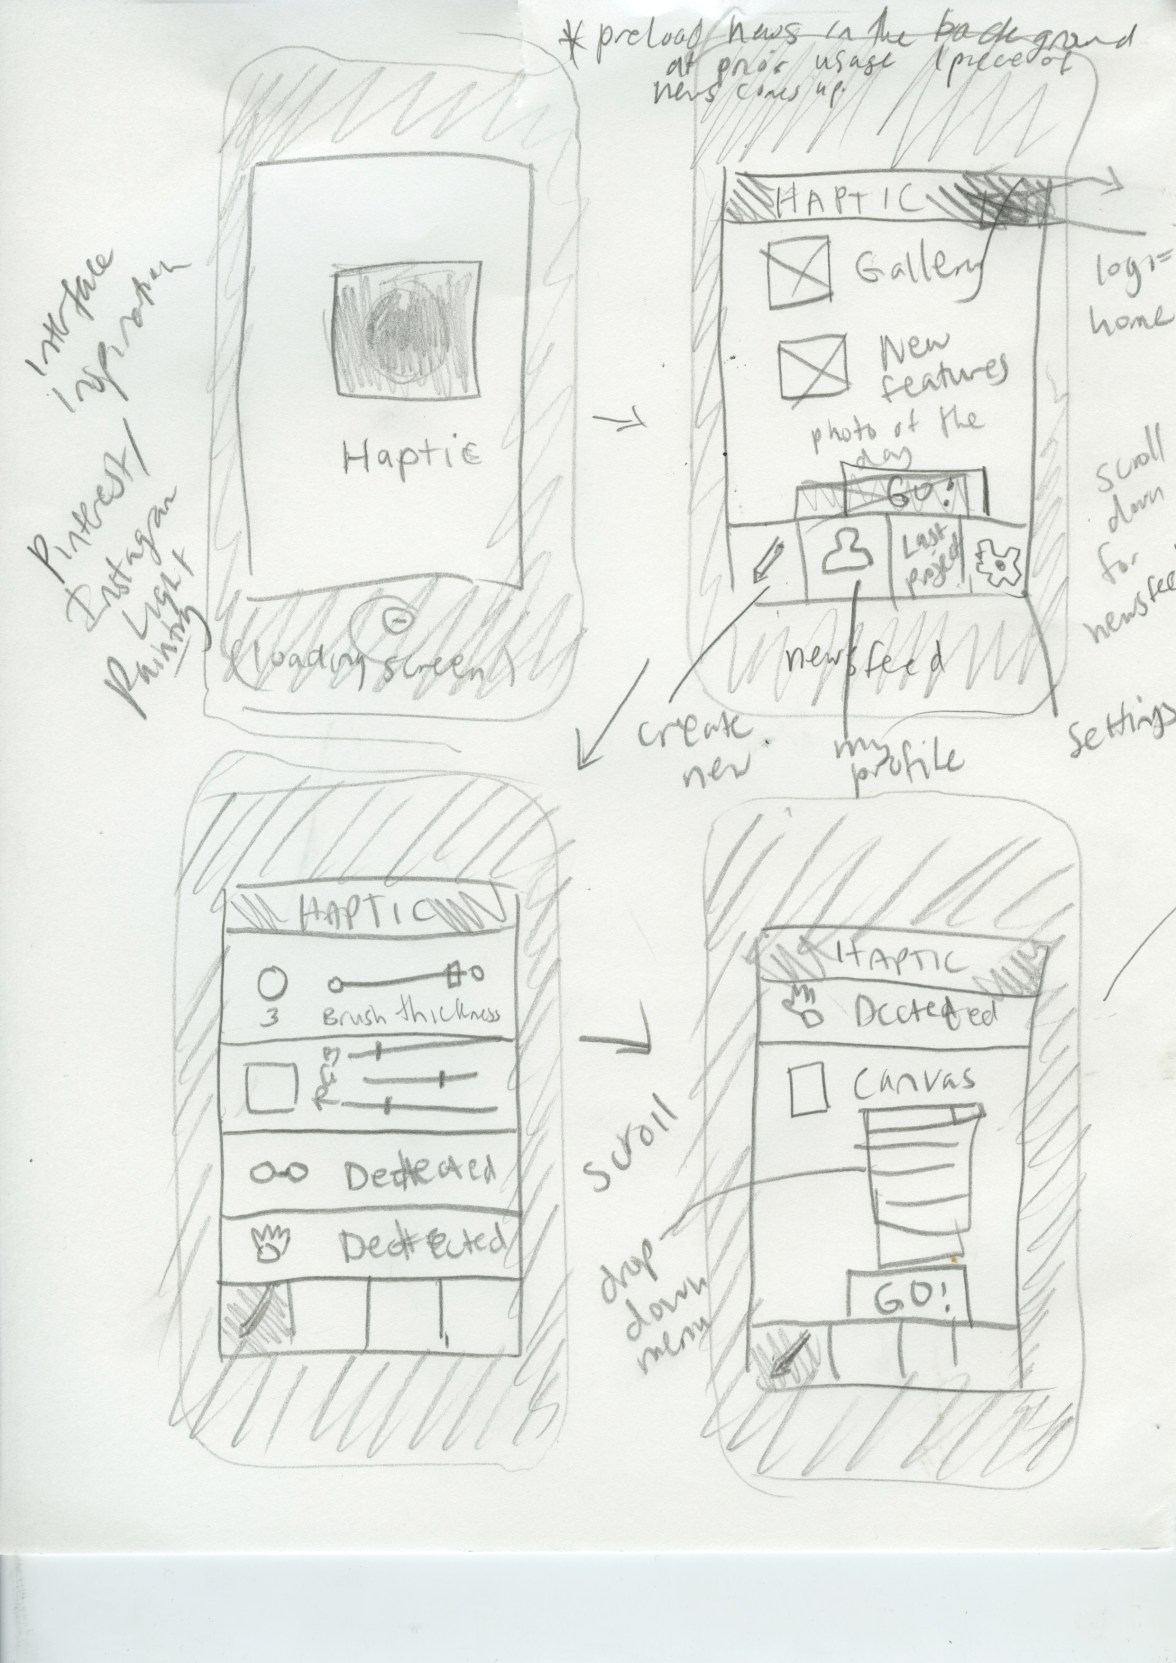 * preload news in the background
at prior usage 1 piece of
news comes up.
Interface
Inspiration
Pinterest/
Instagram
Light
Painting
Haptic
(loading screen)
HAPTIC
Gallery
New
features
photo of the
day
GO!
Last
project
newsfeed
logo=
home
scroll
down
for
newsfee
create
new
my
profile
settings
HAPTIC
3
Brush thickness
B
G
R
Dectected
Dectected
scroll
HAPTIC
Dectected
Canvas
drop
down
menu
GO!